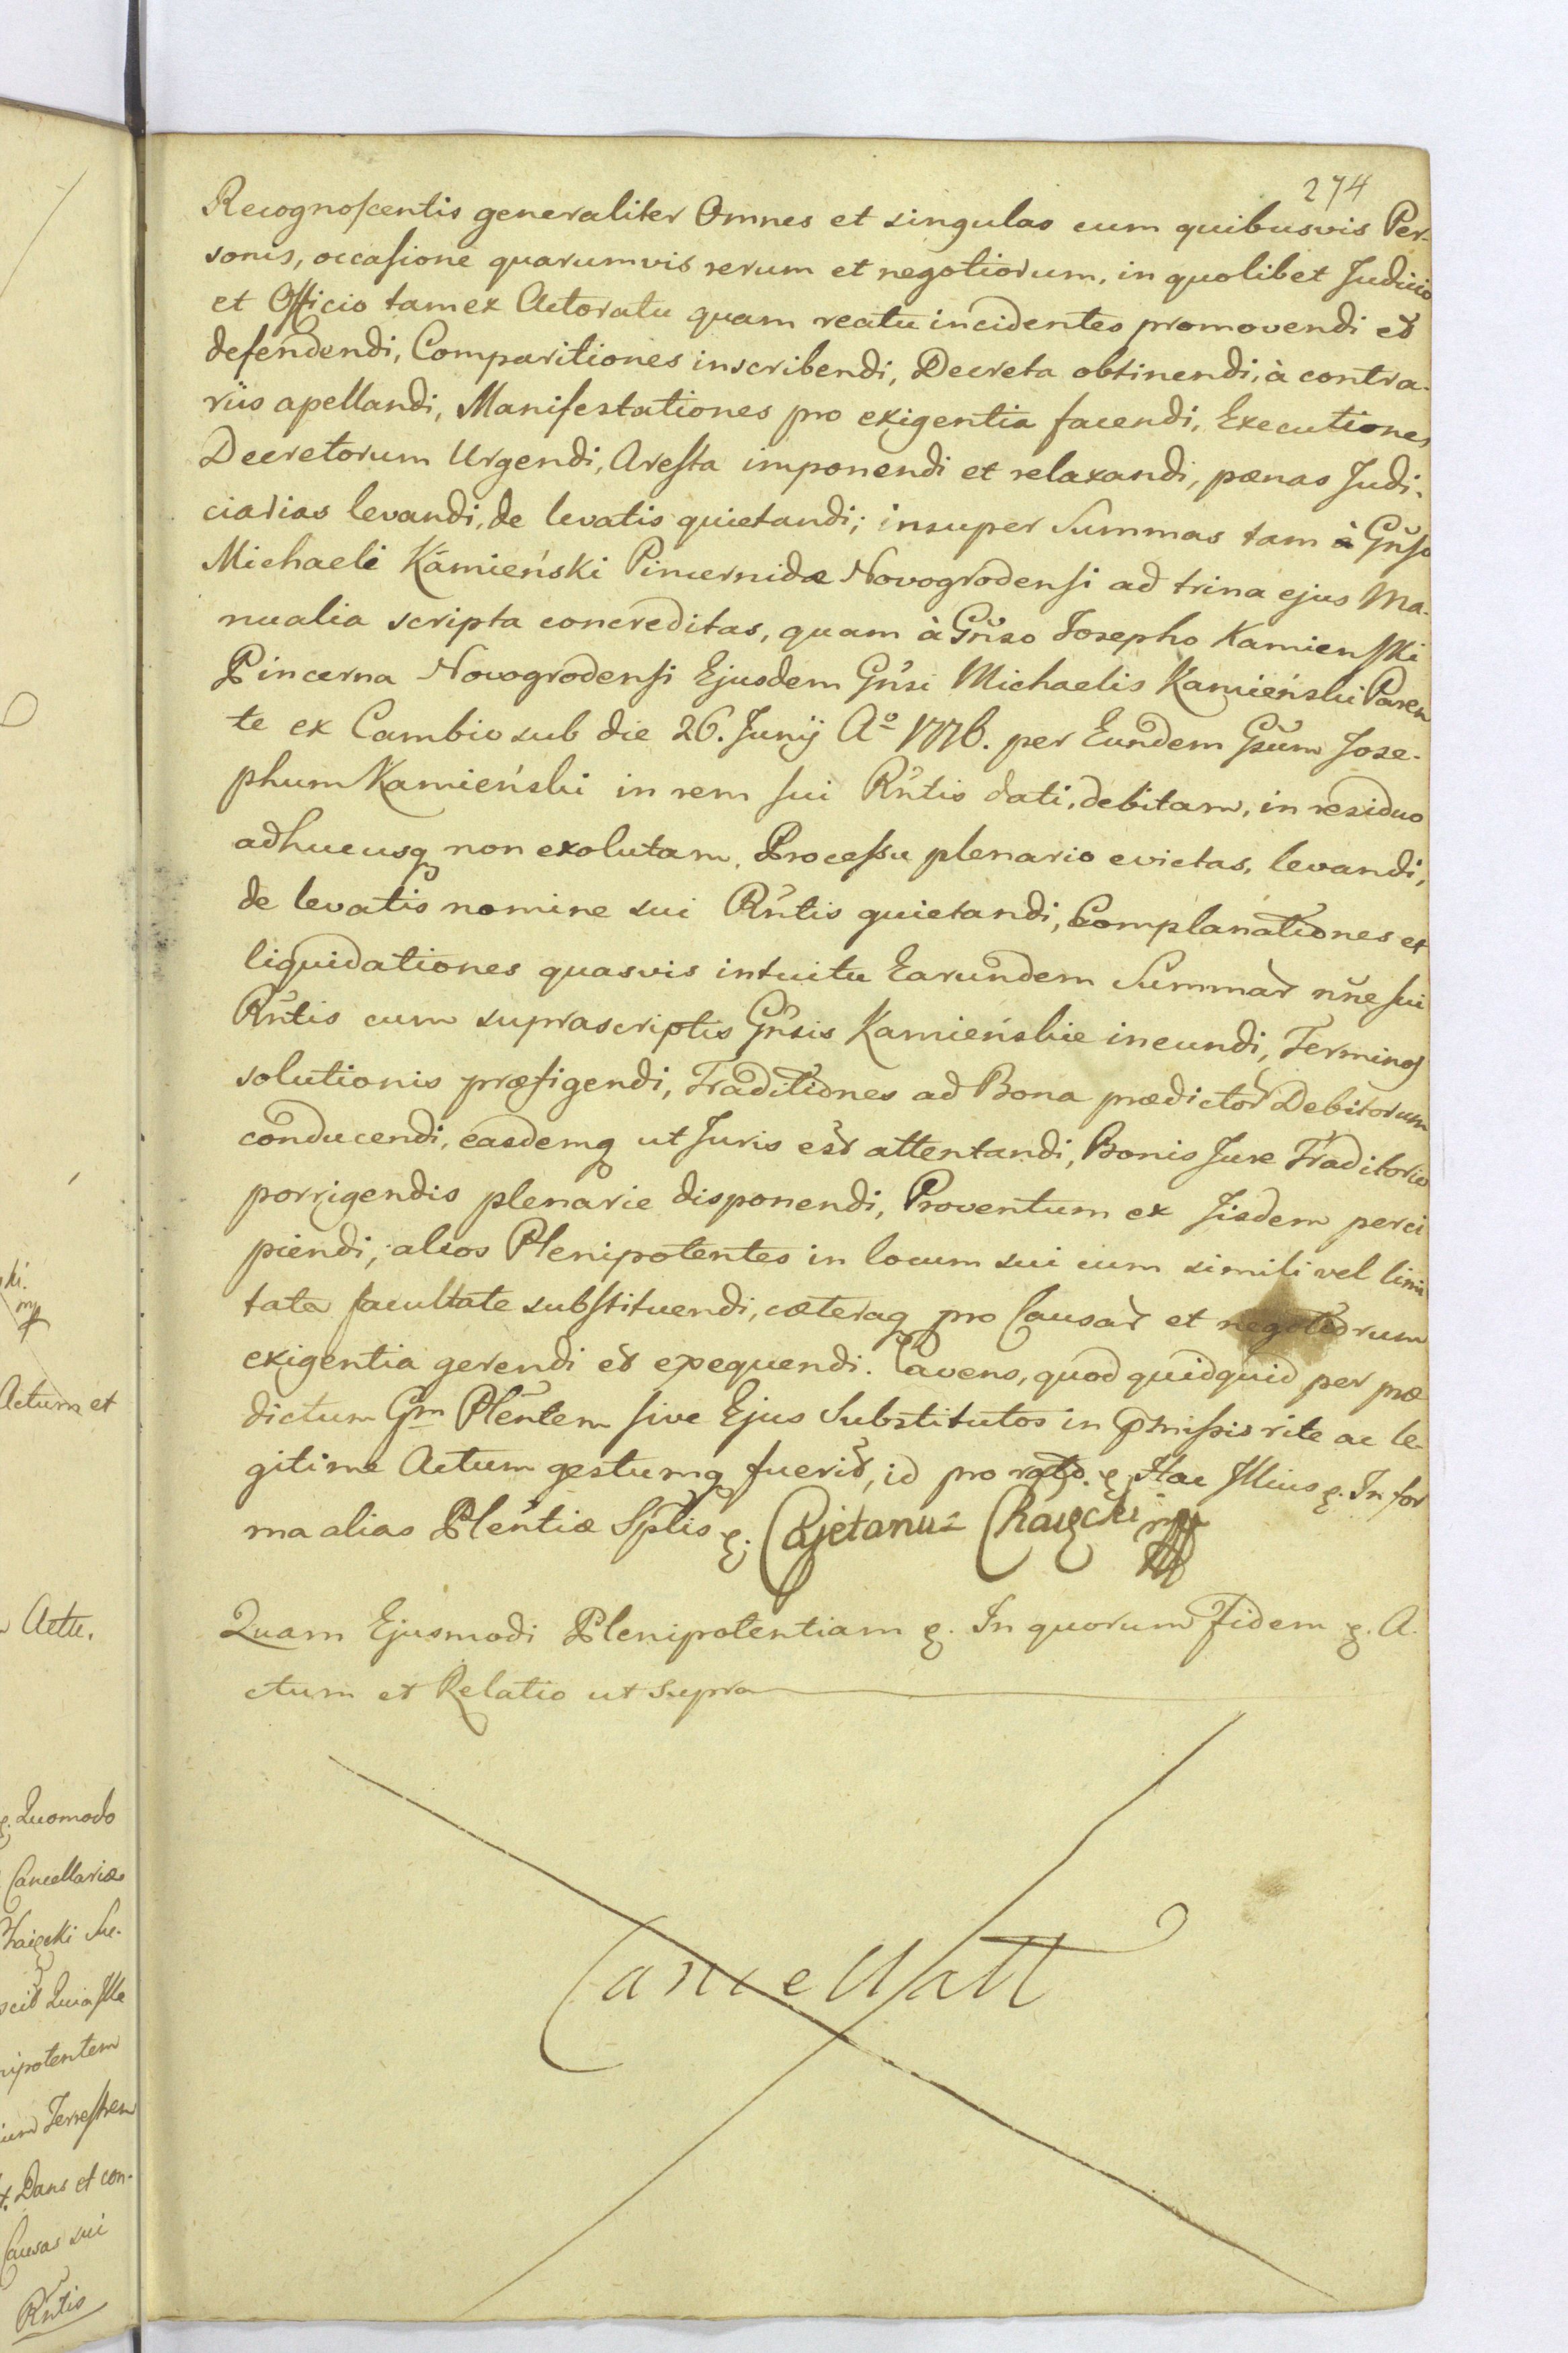 274
Recognoscentis generaliter Omnes et singulas cum quibusvis Per-
sonis, occasione quarumvis rerum et negotiorum, in quolibet Judicio
et Officio tam ex Actoratu quam reatu incidentes promovendi et
defendendi, Comparitiones inscribendi, Decreta obtinendi, à contra-
riis apellandi, Manifestationes pro exigentia faciendi, Executiones
Decretorum Urgendi, Aresta imponendi et relaxandi, pœnas Judi-
ciarias levandi, de levatis quietandi; insuper Summas tam à Gnso
Michaele Kamieński Pincernidæ Novogrodensi ad trina ejus Ma-
nualia scripta concreditas, quam à Gnso Josepho Kamienski
Pincerna Novogrodensi Ejusdem Gnsi Michaelis Kamieński Paren
te ex Cambio sub die 26. Junij Aº 1776. per Eundem Gsum Jose-
phum Kamieński in rem sui Rntis dati, debitam, in residuo
adhucusq non exolutam, Processu plenario evictas, levandi,
de levatis nomine sui Rntis quietandi, Complanationes et
liquidationes quasvis intuitu Earundem Summar nne sui
Rntis cum suprascriptis Gnsis Kamieńskie ineundi, Terminos
solutionis præfigendi, Traditiones ad Bona prædictor Debitorum
conducendi, easdemq ut Juris est attentandi, Bonis Jure Traditorio
porrigendis plenarie disponendi, Proventum ex Jisdem perci
piendi, alios Plenipotentes in locum sui cum simili vel limi
tata facultate substituendi, cæteraq pro Causar et negotiorum
exigentia gerendi et exequendi. Cavens, quod quidquid per præ
dictum Gm Plentem sive Ejus Substitutos in pmissis rite ac le-
gitime Actum gestumq fuerit, id pro rato. &. Hac Illius &. In for
ma alias Plentiæ Splis &. Cajetanus Chaięcki mp
Quam Ejusmodi Plenipotentiam &. In quorum Fidem &. A.
ctum et Relatio ut supra
Cancellatt
ki.
mp
Actum et
Actu.
&. Quomodo
Cancellariæ
Su.
Quia Ille
nipotentem
Terrestrem
Dans et con-
Causas sui
Rntis